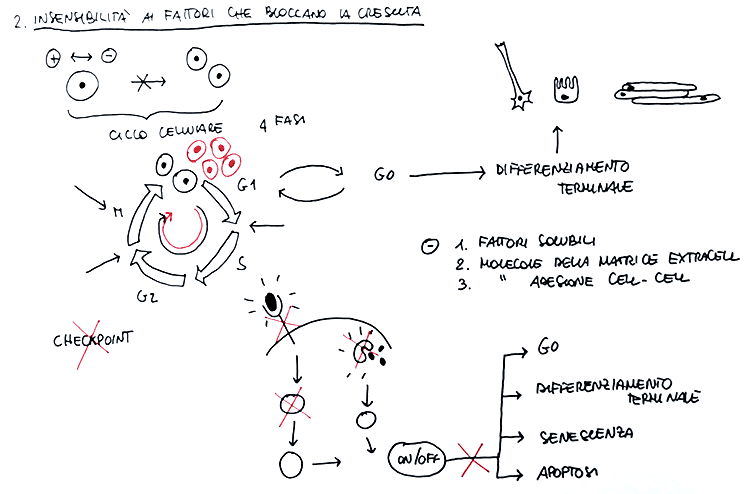 2. INSENSIBILITÀ AI FATTORI CHE BLOCCANO LA CRESCITA
+ ↔ -
CICLO CELLULARE 4 FASI
G1
G0
DIFFERENZIAMENTO
TERMINALE
M
S
G2
- 1. FATTORI SOLUBILI
2. MOLECOLE DELLA MATRICE EXTRACELL
3. " ADESIONE CELL-CELL
CHECKPOINT
G0
DIFFERENZIAMENTO
TERMINALE
ON/OFF
SENESCENZA
APOPTOSI